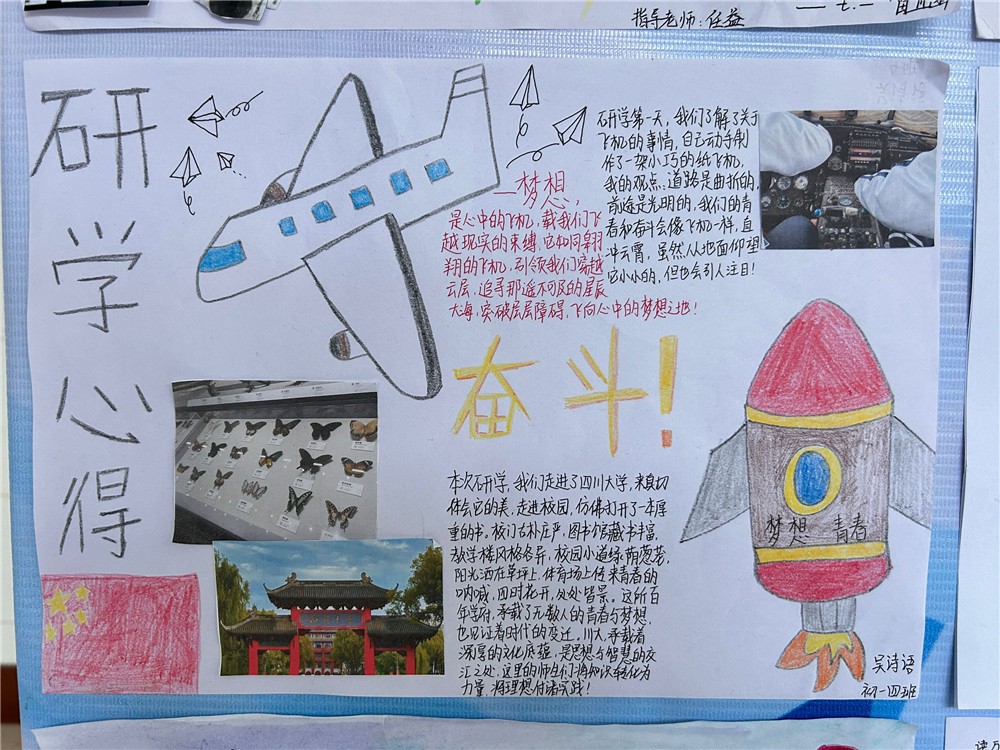 指导老师：任益
研学心得
研学第一天，我们了解了关于
飞机的事情，自己动手制
作了一架小巧的纸飞机，
我的观点：道路是曲折的，
前途是光明的，我们的青
春和奋斗会像飞机一样，直
冲云霄，虽然从地面仰望
它小小的，但也会引人注目！
——梦想，
是心中的飞机，载我们飞
越现实的束缚，它如同翱翔
翔的飞机，引领我们穿越
云层，追寻那遥不可及的星辰
大海，突破层层障碍，飞向心中的梦想之地！
奋斗！
本次研学，我们走进了四川大学，来亲切
体会它的美，走进校园，仿佛打开了一本厚
重的书。校门古朴庄严，图书馆藏书丰富，
教学楼风格各异，校园小道绿荫葱茏，
阳光洒在草坪上，体育场上传来青春的
呐喊，四时花开，处处皆景。这所百
年学府，承载了无数人的青春与梦想，
也见证着时代的变迁，川大，承载着
深厚的文化底蕴，是思想与智慧的交
汇之处，这里的师生们将知识转化为
力量，将理想付诸实践！
梦想 青春
吴诗语
初一四班